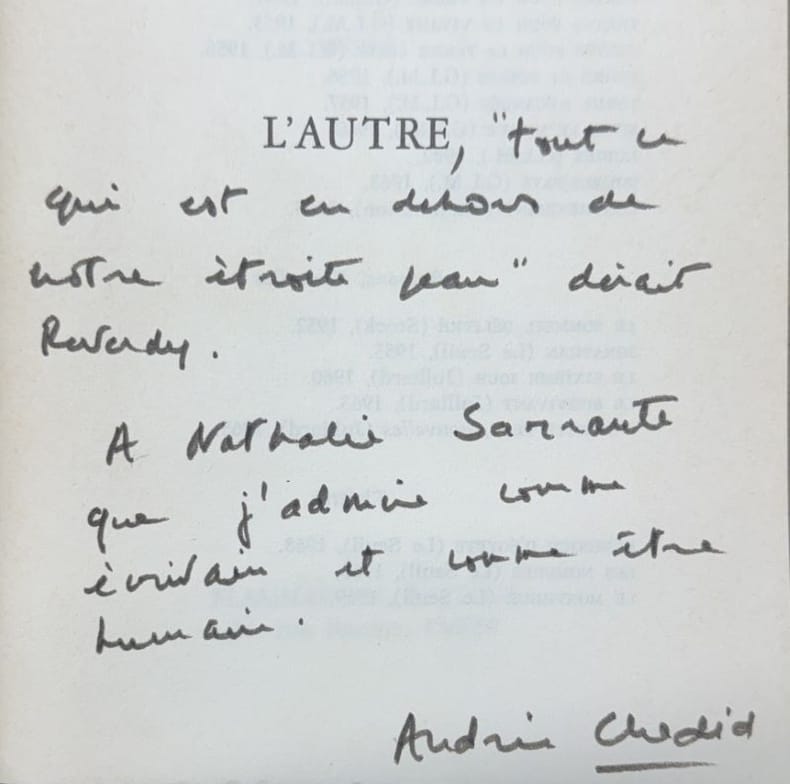 L'AUTRE, "tout ce
qui est en dehors de
notre étroite peau" disait
Reverdy.
A Nathalie Sarraute
que j'admire comme
écrivain et comme être
humain.
Andrée Chedid